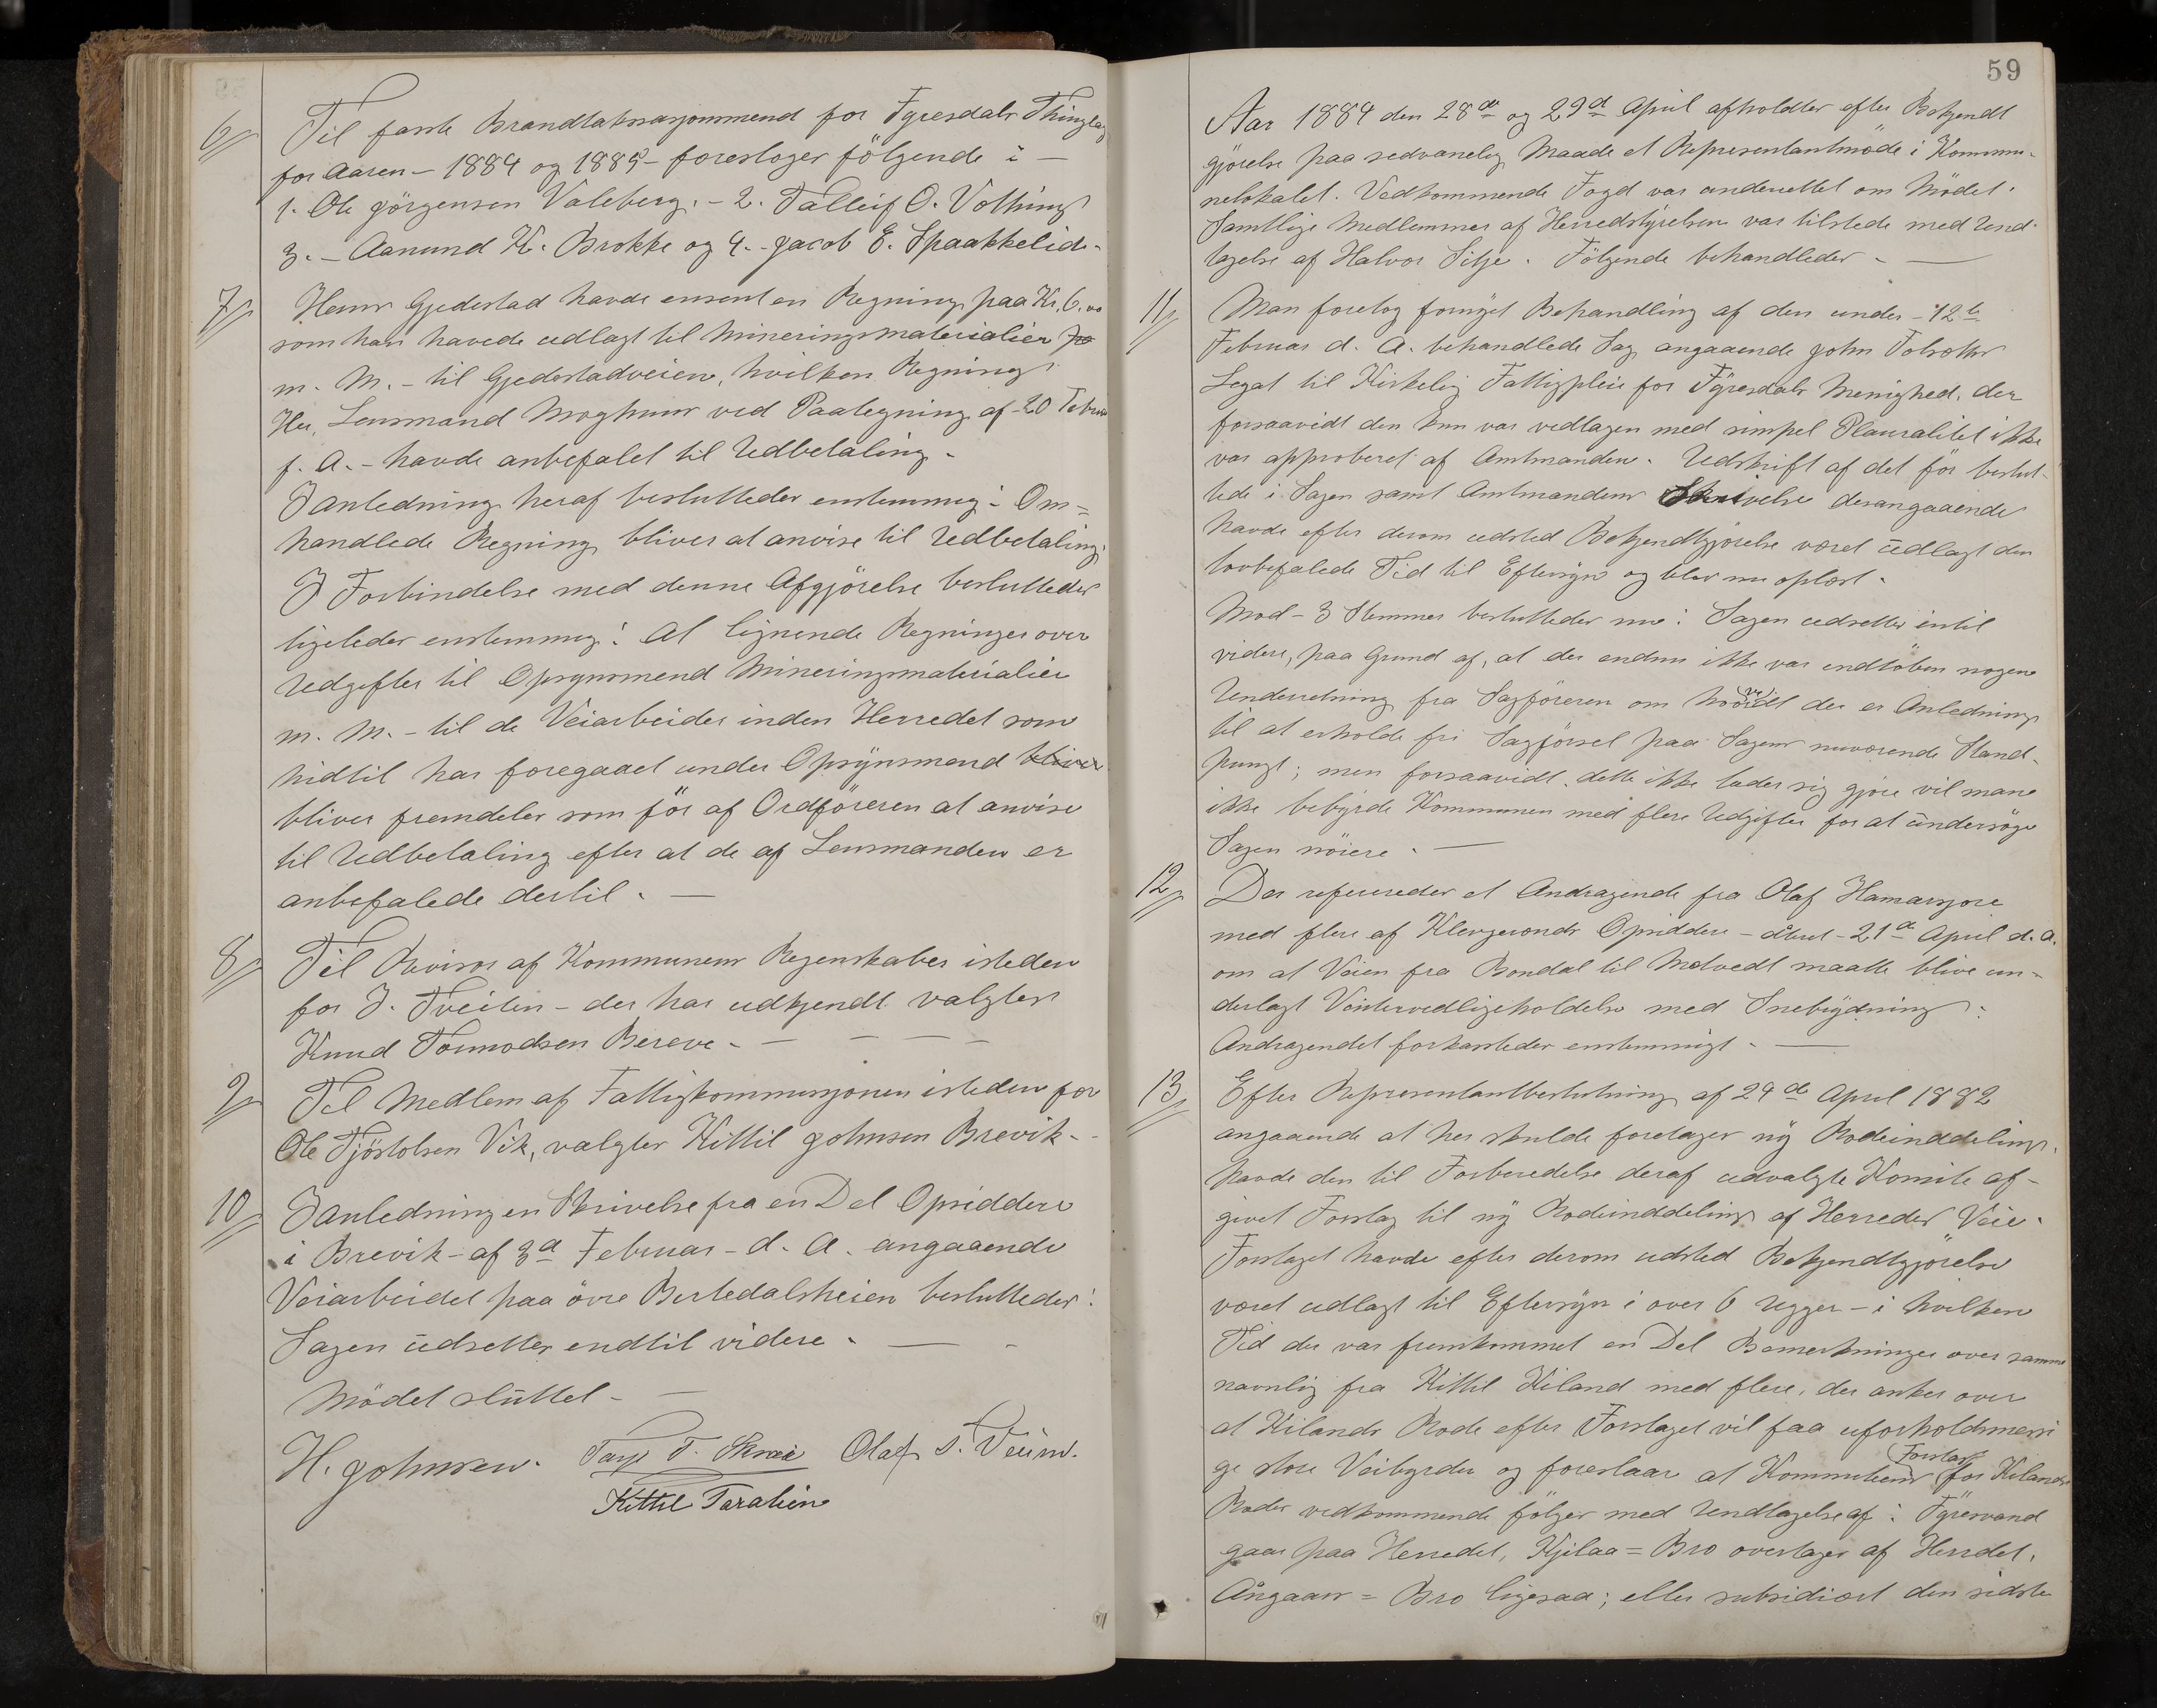 6//
Til faste Brandtaksasjonsmend for Fyresdals Thinglag
for Aaren - 1884 og 1885 - foresloges fölgende :-
1. Ole Görgensen Valeberg. - 2. Talleif O. Vothing
3. - Aanund K. Brokke og 4. - Jacob E. Spaakkelid -
7//
Hans Gjedestad havde ensent en Regning paa Kr. 6.00
som han havede udlagt til Mineringsmaterialier
m. M. - til Gjedestadveien, hvilken Regning
Her. Lensmand Moghuus ved Paategning af - 20 Februar
f. A. - havde anbefalet til Udbetaling -
I anledning heraf beslutteder enstemmig : Om=
handlede Regning bliver at anvise til Udbetaling.
I Forbindelse med denne Afgjörelse beslutteder
ligeleder enstemmig : At lignende Regninger over
Udgifter til Opsynsmend Mineringsmaterialier
m. M. - til de Veiarbeider inden Herredet som
hidtil har foregaaet under Opsynsmend bliver
bliver fremdeles som för af Ordföreren at anvise
til Udbetaling efter at de af Lensmanden er
anbefalede dertil . -
8//
Til Revisor af Kommunens Regenskaber isteden
for J. Tveiten - der har udkjendt valgtes
Knud Tormodsen Bereve - - - - -
9//
Til Medlem af Fattigkommusjonen isteden for
Ole Tjöstolsen Vik, valgtes Kittil Johnsen Brevik -
10//
I anledning en Skrivelse fra en Del Opsiddere
i Brevik - af 3d Februar - d. A. angaaende
Veiarbeidet paa övre Bertedalsheien beslutteder :
Sagen udsettes endtil videre . - -
Mödet sluttet - -
H. Johnsen. Olaf S. Veum.
Kittil Taraldlien
59
Aar 1884 den 28de og 29d April afholdtes efter Bekjendt
gjörelse paa sedvanelig Maade et Representantmöde i Kommu-
nelokalet. Vedkommende Fogd var underettet om Mödet.
Samtlige Medlemmer af Herredstyrelsen var tilstede med Und-
tagelse af Halvor Sitje . Fölgende behandleder - -
11//
Man foretog fornyet Behandling af den under - 12te
Februar d. A. behandlede Sag angaaende John Folsæters
Legat til Kirkelig Fattigpleie for Fyresdals Menighed, der
forsaavidt den kun var vedtagen med simpel Plauralitet ikke
var approberet af Amtmanden. Udskrift af det för beslut-
tede i Sagen samt Amtmandens Skrivelse desangaaende
havde efter derom udsted Bekjendtgjörelse været udlagt den
lovbefalede Tid til Eftersyn og blev nu oplæst .
Mod - 3 Stemmer beslutteder nu : Sagen udsettes intil
videre, paa Grund af, at der endnu ikke var endlöben nogen
Underretning fra Sagföreren om hvorvidt der er Anledning
til at erholde fri Sagförsel paa Sagens nuværende Stand-
pungt ; men forsaavidt dette ikke lader sig gjöre vil man
ikke bebyrde Kommunen med flere Udgifter for at undersöge
Sagen nöiere . -
12//
Der refereredes et Andragende fra Olaf Hamarsjore
med flere af Klevgerands Opsiddere - datert - 21de April d. A.
om at Veien fra Bondal til Motvedt maatte blive un-
derlagt Vintervedligeholdelse med Snebrydning :
Andragendet forkasteder enstemmigt - -
13//
Efter Representantbeslutning af 24de April 1882
angaaende at her skulde foretages ny Rodeinddeling,
havde den til Forberedelse deraf udvalgte Komite af-
givet Forslag til ny Rodeinddeling af Herreder Veie -
Forslaget havde efter derom udsted Bekjendtgjörelse
været udlagt til Eftersyn i over 6 Ugger - i hvilken
Tid der var fremkommet en Del Bemerkninger over samme
navnlig fra Kittil Kiland med flere, der anker over
at Kilands Rode efter Forslaget vil faa uforholdsmessi
ge store Veibyrder og foreslaar at Kommuteens Forslag for Kilands
Roder vedkommende fölger med Undtagelse af : Fyresvand
gaar paa Herredet, Kjilaa = Bro overtages af Herredet,
Aangaar = Bro ligesaa ; eller subsidiært den sidste